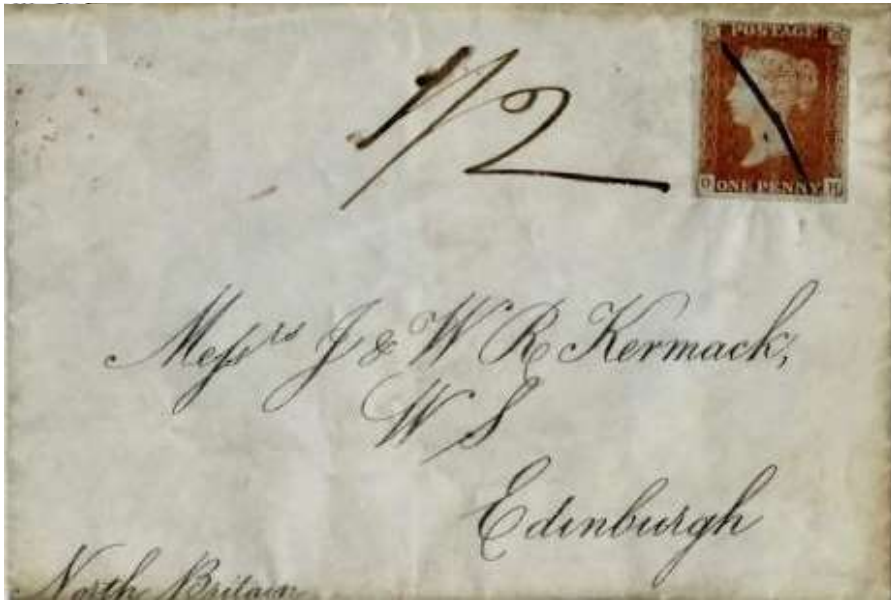 1/2
POSTAGE
ONE PENNY
Messrs J & W R Kermack,
W S
Edinburgh
North Britain